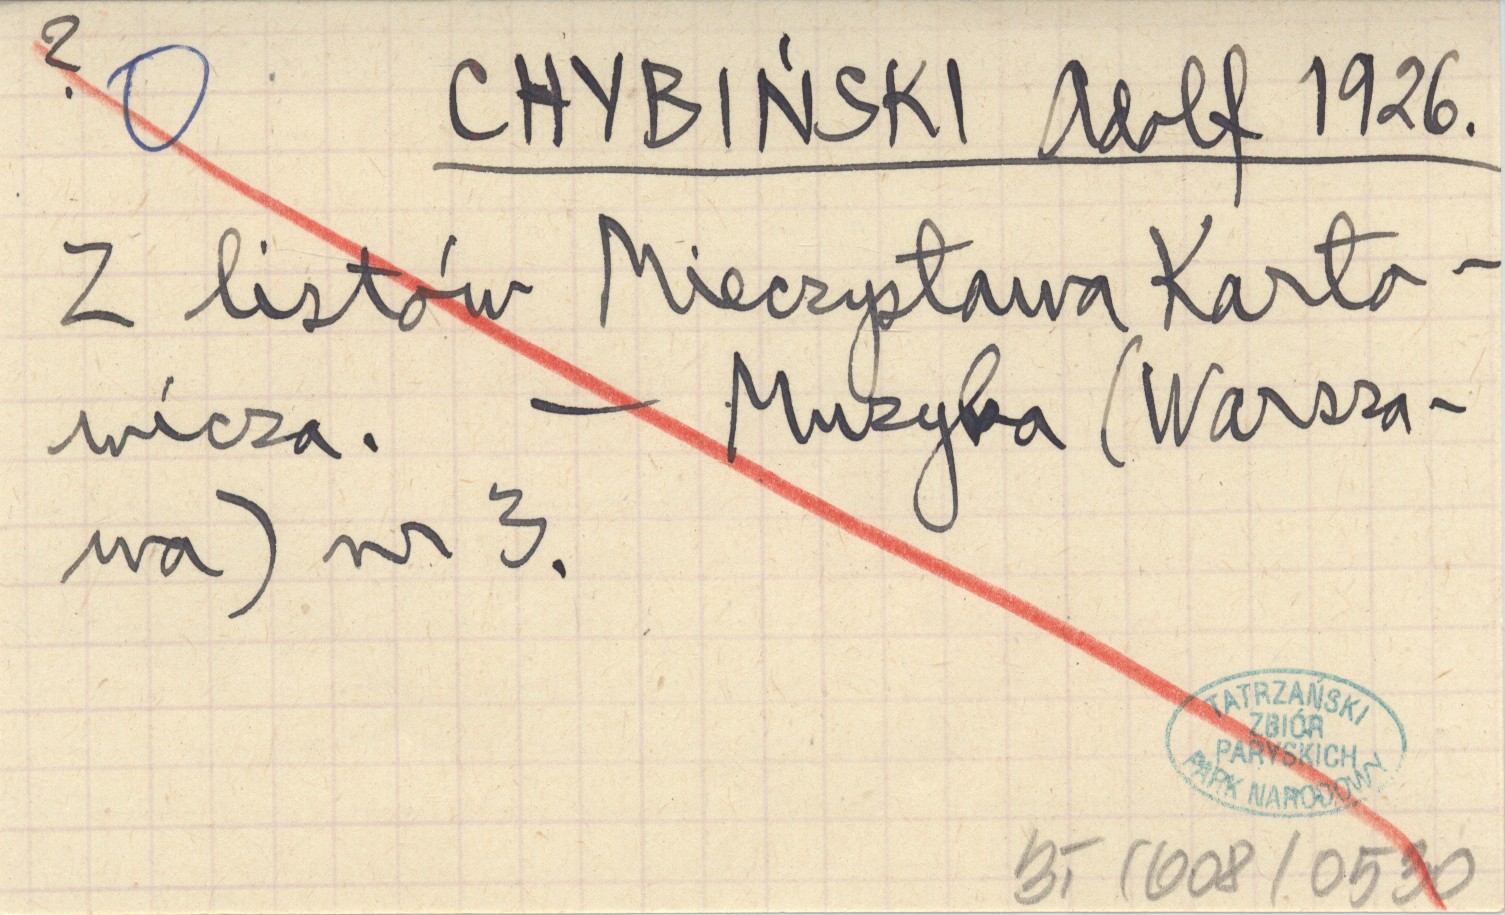 ?
CHYBIŃSKI Adolf 1926.
Z listów Mieczysława Karło-
wicza. — Muzyka (Warsza-
wa) nr 3.
TATRZAŃSKI
ZBIÓR
PARYSKICH
PARK NARODOWY
/608/0530